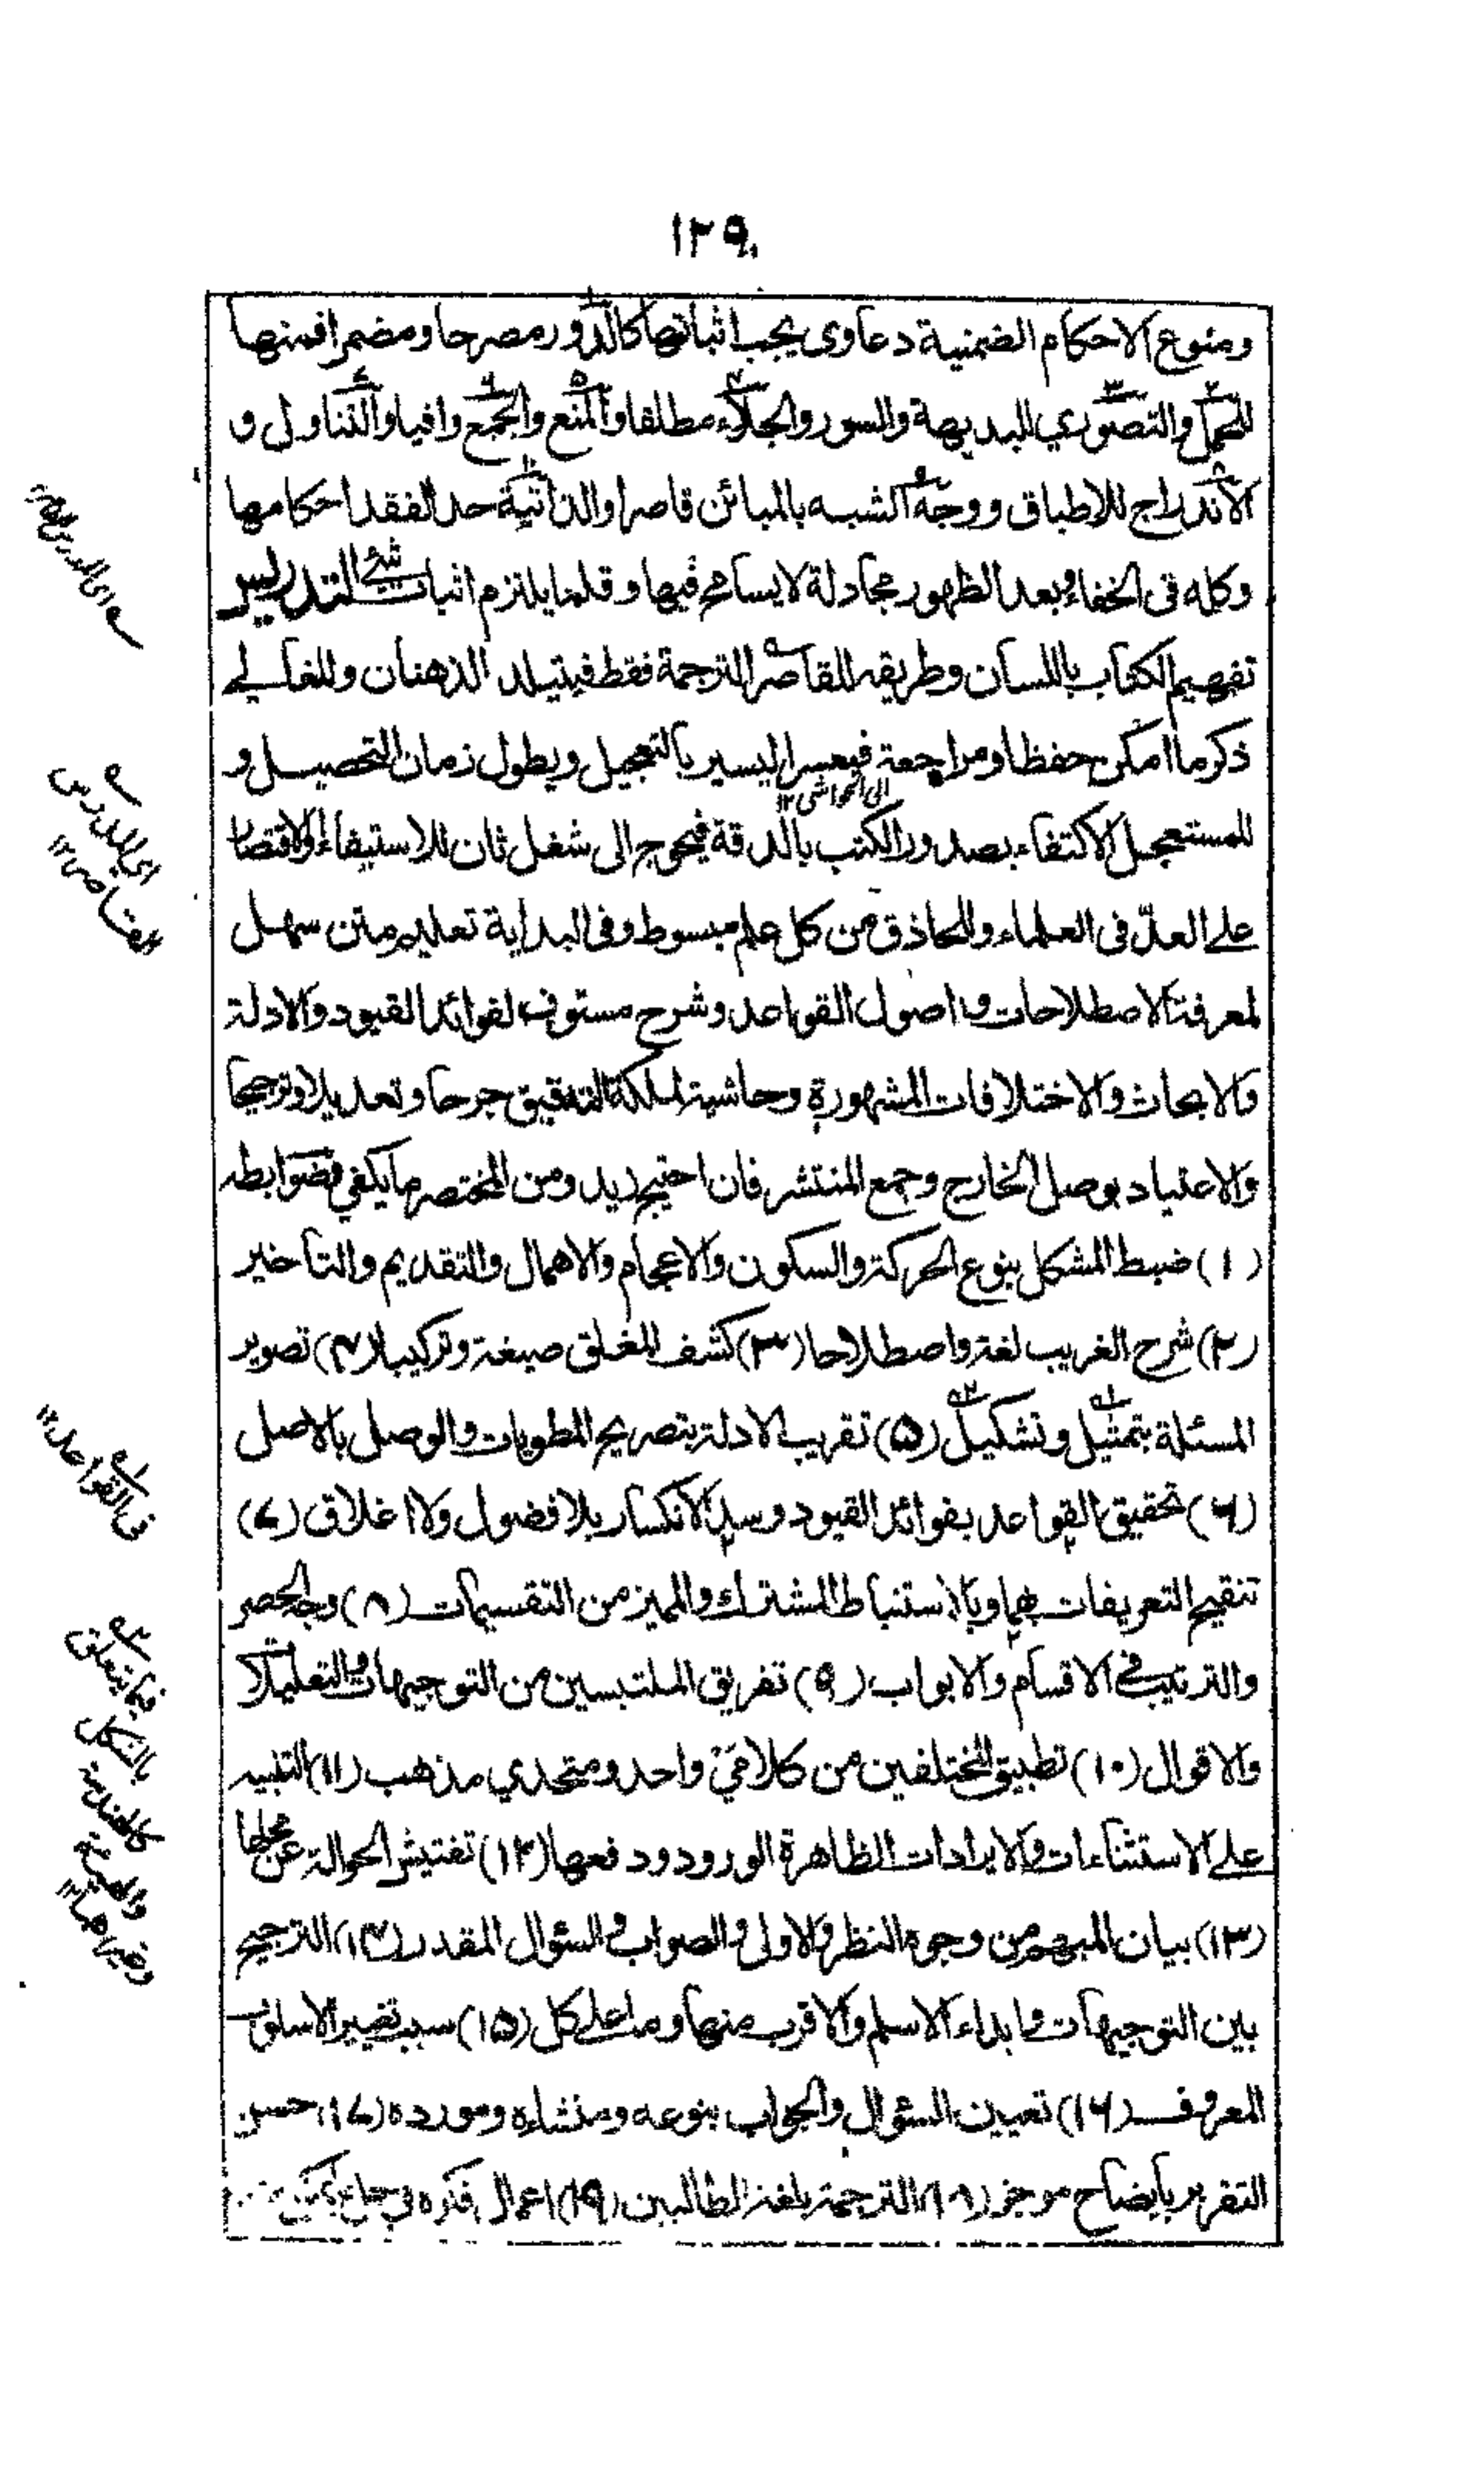 ١٢٩
ومنوع الاحكام الضمنية دعاوى يجب اثباتها كالدور مصرحا ومضمرا فمنها
للحمل والتصوري للبديهة والسور والجلاء مطلقا والمنع والجمع وافيا والتناول و
الاندراج للاطباق ووجه الشبه بالمبائن قاصرا والذاتية حد الفقد احكامها
وكله فى الخفاء وبعد الظهور مجادلة لا يسامح فيها وقلما يلتزم اثبات شئ التدريس
تفهيم الكتاب باللسان وطريقه للقاصر الترجمة فقط فيتبلد الذهنان وللغالي
ذكر ما امكن حفظا ومراجعة فيعسر اليسير بالتعجيل ويطول زمان التحصيل و
الى الحواشى ١٢
للمستعجل الاكتفاء بصدور الكتب بالدقة فيحوج الى شغل ثان للاستيفاء والاقتصار
على العد فى العلماء والحاذق من كل علم مبسوط وفى البداية تعليم متن سهل
لمعرفة الاصطلاحات واصول القواعد وشرح مستوف لفوائد القيود والادلة
والابحاث والاختلافات المشهورة وحاشية لملكة التدقيق جرحا وتعديلا وترجيحا
والاعتياد بوصل الخارج وجمع المنتشر فان احتيج زيد ومن المختصر ما يكفي فضوابطه
(١) ضبط المشكل بنوع الحركة والسكون والاعجام والاهمال والتقديم والتأخير
(٢) شرح الغريب لغة واصطلاحا (٣) كشف المغلق صيغة وتركيبا (٤) تصوير
المسئلة بتمثيل وتشكيل (۵) تقريب الادلة بتصريح المطويات والوصل بالاصل
(۶) تحقيق القواعد بفوائد القيود وسد الانكسار بلا فضول ولا اغلاق (٧)
تنقيح التعريفات بهما وبالاستنباط المشترك والمميز من التقسيمات (٨) وجه الحصر
والترتيب في الاقسام والابواب (٩) تفريق الملتبسين من التوجيهات والتعليلات
والاقوال (١٠) تطبيق المختلفين من كلامَيْ واحد ومتحدي مذهب (١١) التنبيه
على الاستثناءات والايرادات الظاهرة الورود ودفعها (١٢) تفتيش الحوالة عن محلها
(١٣) بيان المبهم من وجوه النظر والاولى والصواب والسؤال المقدر (١٤) الترجيح
بين التوجيهات وابداء الاسلم والاقرب منها وما على كل (١۵) سبب تغيير الاسلوب
المعروف (١۶) تعيين السؤال والجواب بنوعه ومنشاءه ومورده (١٧) حسن
التقرير بايضاح موجز (١٨) الترجمة بلغة الطالبين (١٩) اعمال فكره في
اى للمدرس
القاصر ١٢
فى القواعد ١٢
فيما يتعلق
بالشكل
كالهندسة
والهيئة
وغيرهما ١٢